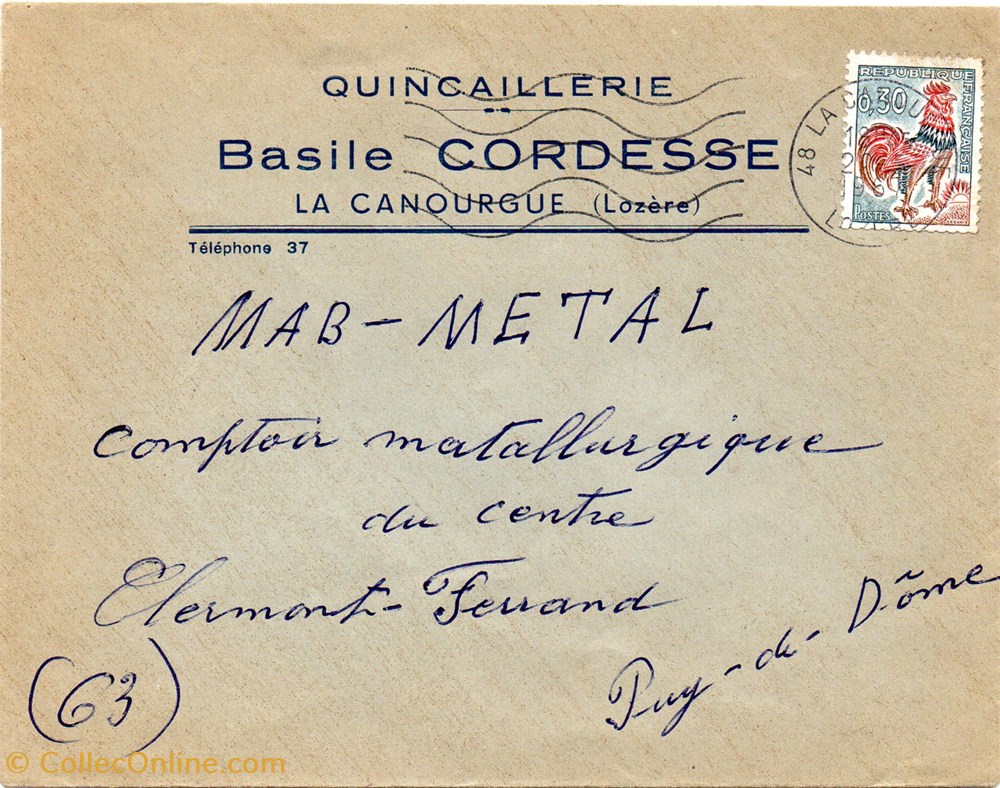 QUINCAILLERIE
Basile CORDESSE
LA CANOURGUE (Lozère)
Téléphone 37
REPUBLIQUE FRANÇAISE
0,30
POSTES
48 LA
LOZERE
MAB - METAL
Comptoir matallurgique
du centre
Clermont-Ferrand
(63)
Puy-de-Dôme
© CollecOnline.com